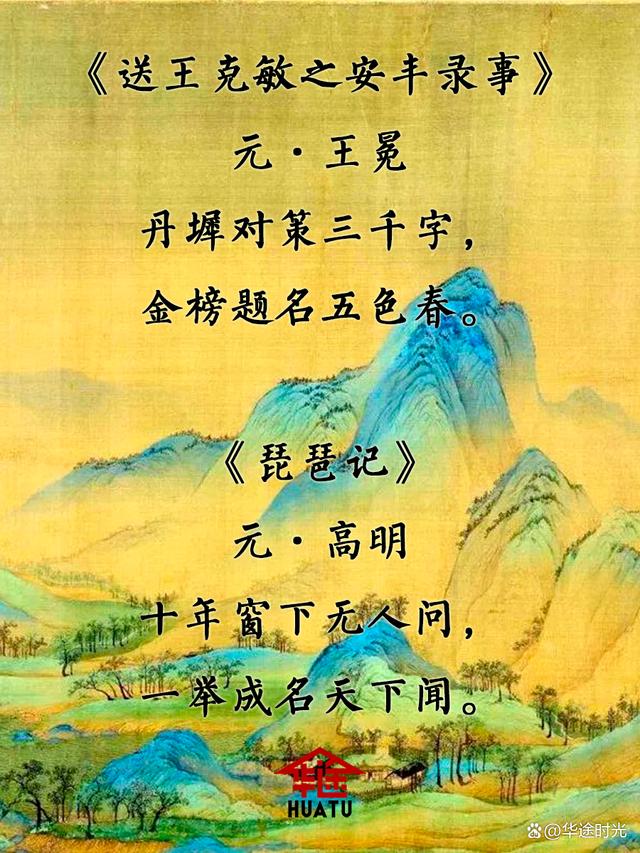 《送王克敏之安丰录事》
元·王冕
丹墀对策三千字，
金榜题名五色春。
《琵琶记》
元·高明
十年窗下无人问，
一举成名天下闻。
华图
HUATU
@华途时光